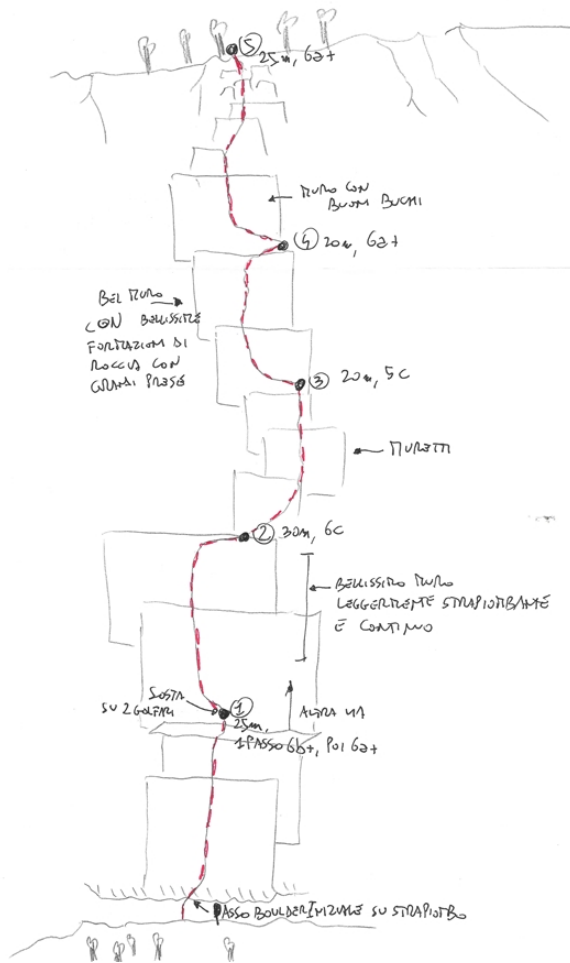 5
25m, 6a+
MURO CON
BUONI BUCHI
4 20m, 6a+
BEL MURO
CON BELLISSIME
FORMAZIONI DI
ROCCIA CON
GRANDI PRESE
3 20m, 5c
MURETTI
2 30m, 6c
BELLISSIMO MURO
LEGGERMENTE STRAPIOMBANTE
E CONTINUO
SOSTA
SU 2 GOLFARI
1
25m,
1 PASSO 6b+, POI 6a+
ALTRA VIA
PASSO BOULDER INIZIALE SU STRAPIOMBO